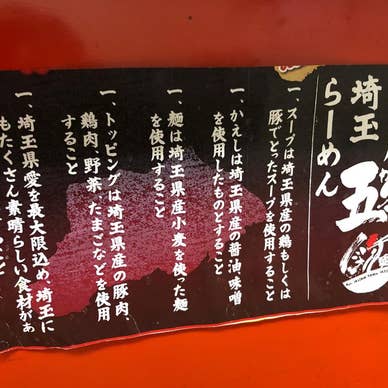 埼玉
らーめん
五
一、スープは埼玉県産の鶏もしくは
豚でとったスープを使用すること
一、かえしは埼玉県産の醤油味噌
を使用したものとすること
一、麺は埼玉県産小麦を使った麺
を使用すること
一、トッピングは埼玉県産の豚肉、
鶏肉、野菜、たまごなどを使用
すること
一、埼玉県愛を最大限込め、埼玉に
もたくさん素晴らしい食材があ